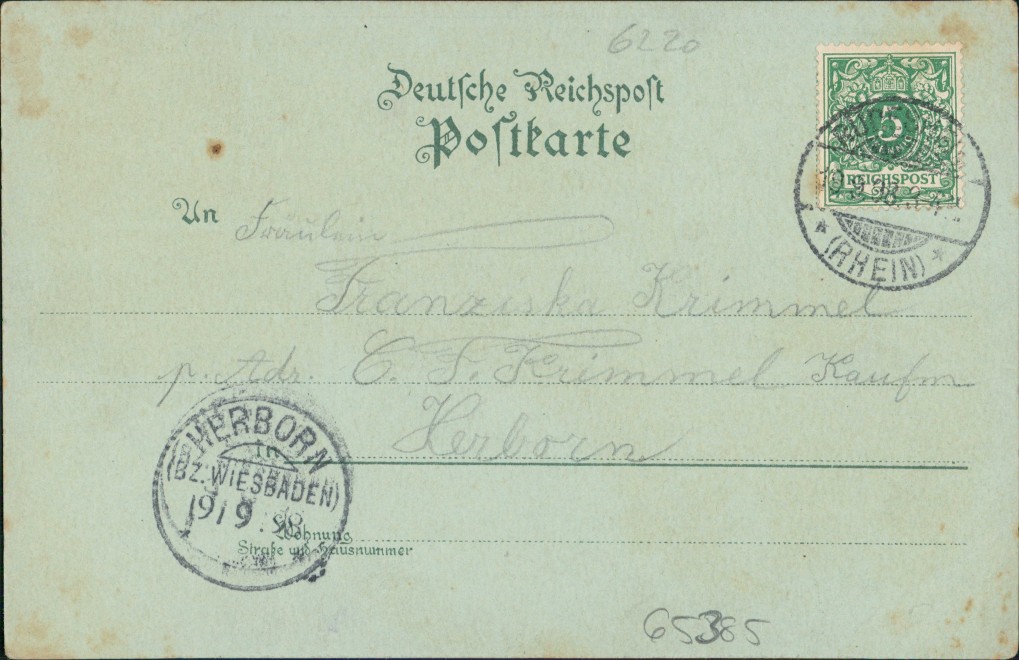 6220
Deutsche Reichspost
Postkarte
5
REICHSPOST
9.98
* (RHEIN) *
An Fräulein
Franziska Krimmel
p. Adr. C. F. Krimmel Kaufm
Herborn
HERBORN
(BZ. WIESBADEN)
19/9.98
Wohnung
Straße und Hausnummer
65385